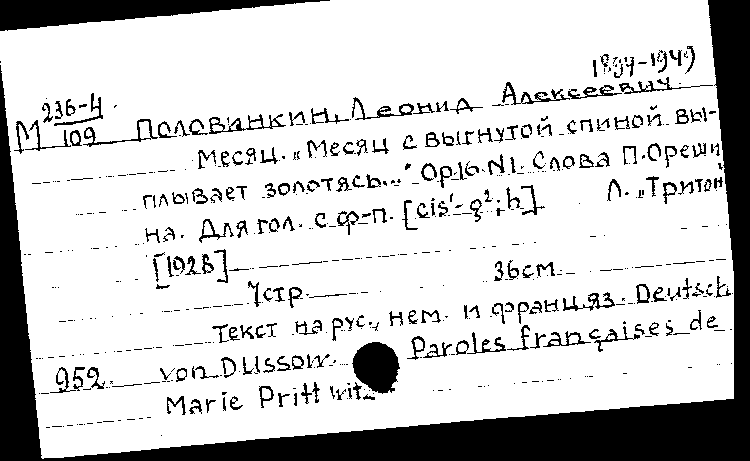 1894-1949
М 236-4
109 Половинкин, Леонид Алексеевич.
Месяц. „Месяц с выгнутой спиной вы-
плывает золотясь..." Op.16. N1. Слова П. Ореши
на. Для гол. с ф-п. [cis¹-g²; h] Л. „Тритон"
[1928]
7стр. 36см.
Текст на рус., нем. и франц. яз. Deutsch
952. von Dussow. Paroles françaises de
Marie Prittwitz